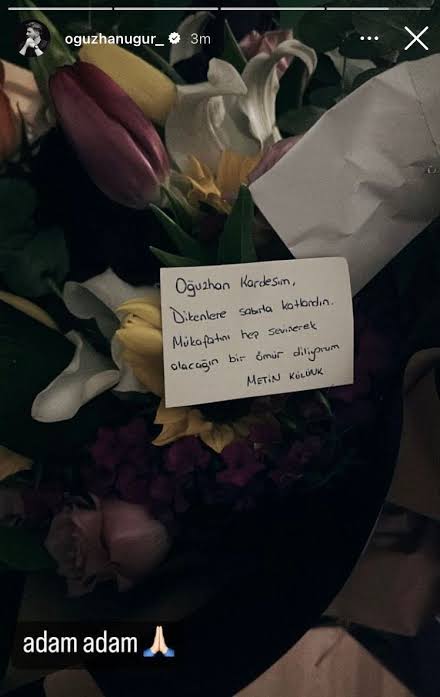 oguzhanugur_ 3m
Oğuzhan Kardeşim,
Dikenlere sabırla katlandın.
Mükafatını hep sevinerek
alacağın bir ömür diliyorum
METİN KÜLÜNK
adam adam 🙏🏻